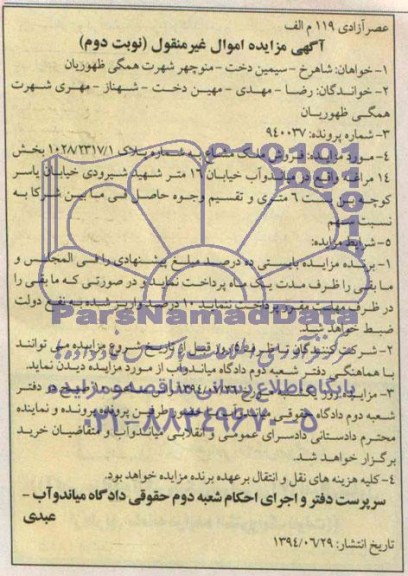 عصرآزادی ۱۱۹ م الف
آگهی مزایده اموال غیرمنقول (نوبت دوم)
۱-خواهان: شاهرخ - سیمین دخت - منوچهر شهرت همگی ظهوریان
۲- خواندگان: رضا - مهدی - مهین دخت - شهناز - مهری شهرت
همگی ظهوریان
۳- شماره پرونده: ۹۴۰۰۳۷
۴- مورد مزایده: فروش ملک مشاع به شماره پلاک ۱۰۲۸/۲۳۱۷/۱ بخش
۱۴ مراغه واقع در میاندوآب خیابان ۱۶ متر شهید شیرودی خیابان یاسر
کوچه بن بست ۶ متری و تقسیم وجوه حاصل فی ما بین شرکا به
نسبت سهم
۵- شرایط مزایده:
۱- برنده مزایده بایستی ده درصد مبلغ پیشنهادی را فی المجلس و
ما بقی را ظرف مدت یک ماه پرداخت نماید و در صورتی که ما بقی را
در ظرف مهلت مقرر پرداخت ننماید ۱۰ درصد واریز شده به نفع دولت
ضبط خواهد شد.
۲- شرکت کنندگان تا ظرف ۵ روز قبل از تاریخ شروع مزایده می توانند
با هماهنگی دفتر شعبه دوم دادگاه میاندوآب از مورد مزایده دیدن نماید.
۳- مزایده روز یکشنبه مورخ دفتر
شعبه دوم دادگاه حقوقی میاندوآب با حضور طرفین پرونده و نماینده
محترم دادستانی دادسرای عمومی و انقلابی میاندوآب و متقاضیان خرید
برگزار خواهد شد.
۴-کلیه هزینه های نقل و انتقال برعهده برنده مزایده خواهد بود.
سرپرست دفتر و اجرای احکام شعبه دوم حقوقی دادگاه میاندوآب -
عبدی
تاریخ انتشار: ۱۳۹۴/۰۶/۲۹
ParsNamadData
پایگاه اطلاع رسانی مناقصه و مزایده
۰۲۱-۸۸۳۴۹۶۷۰-۵